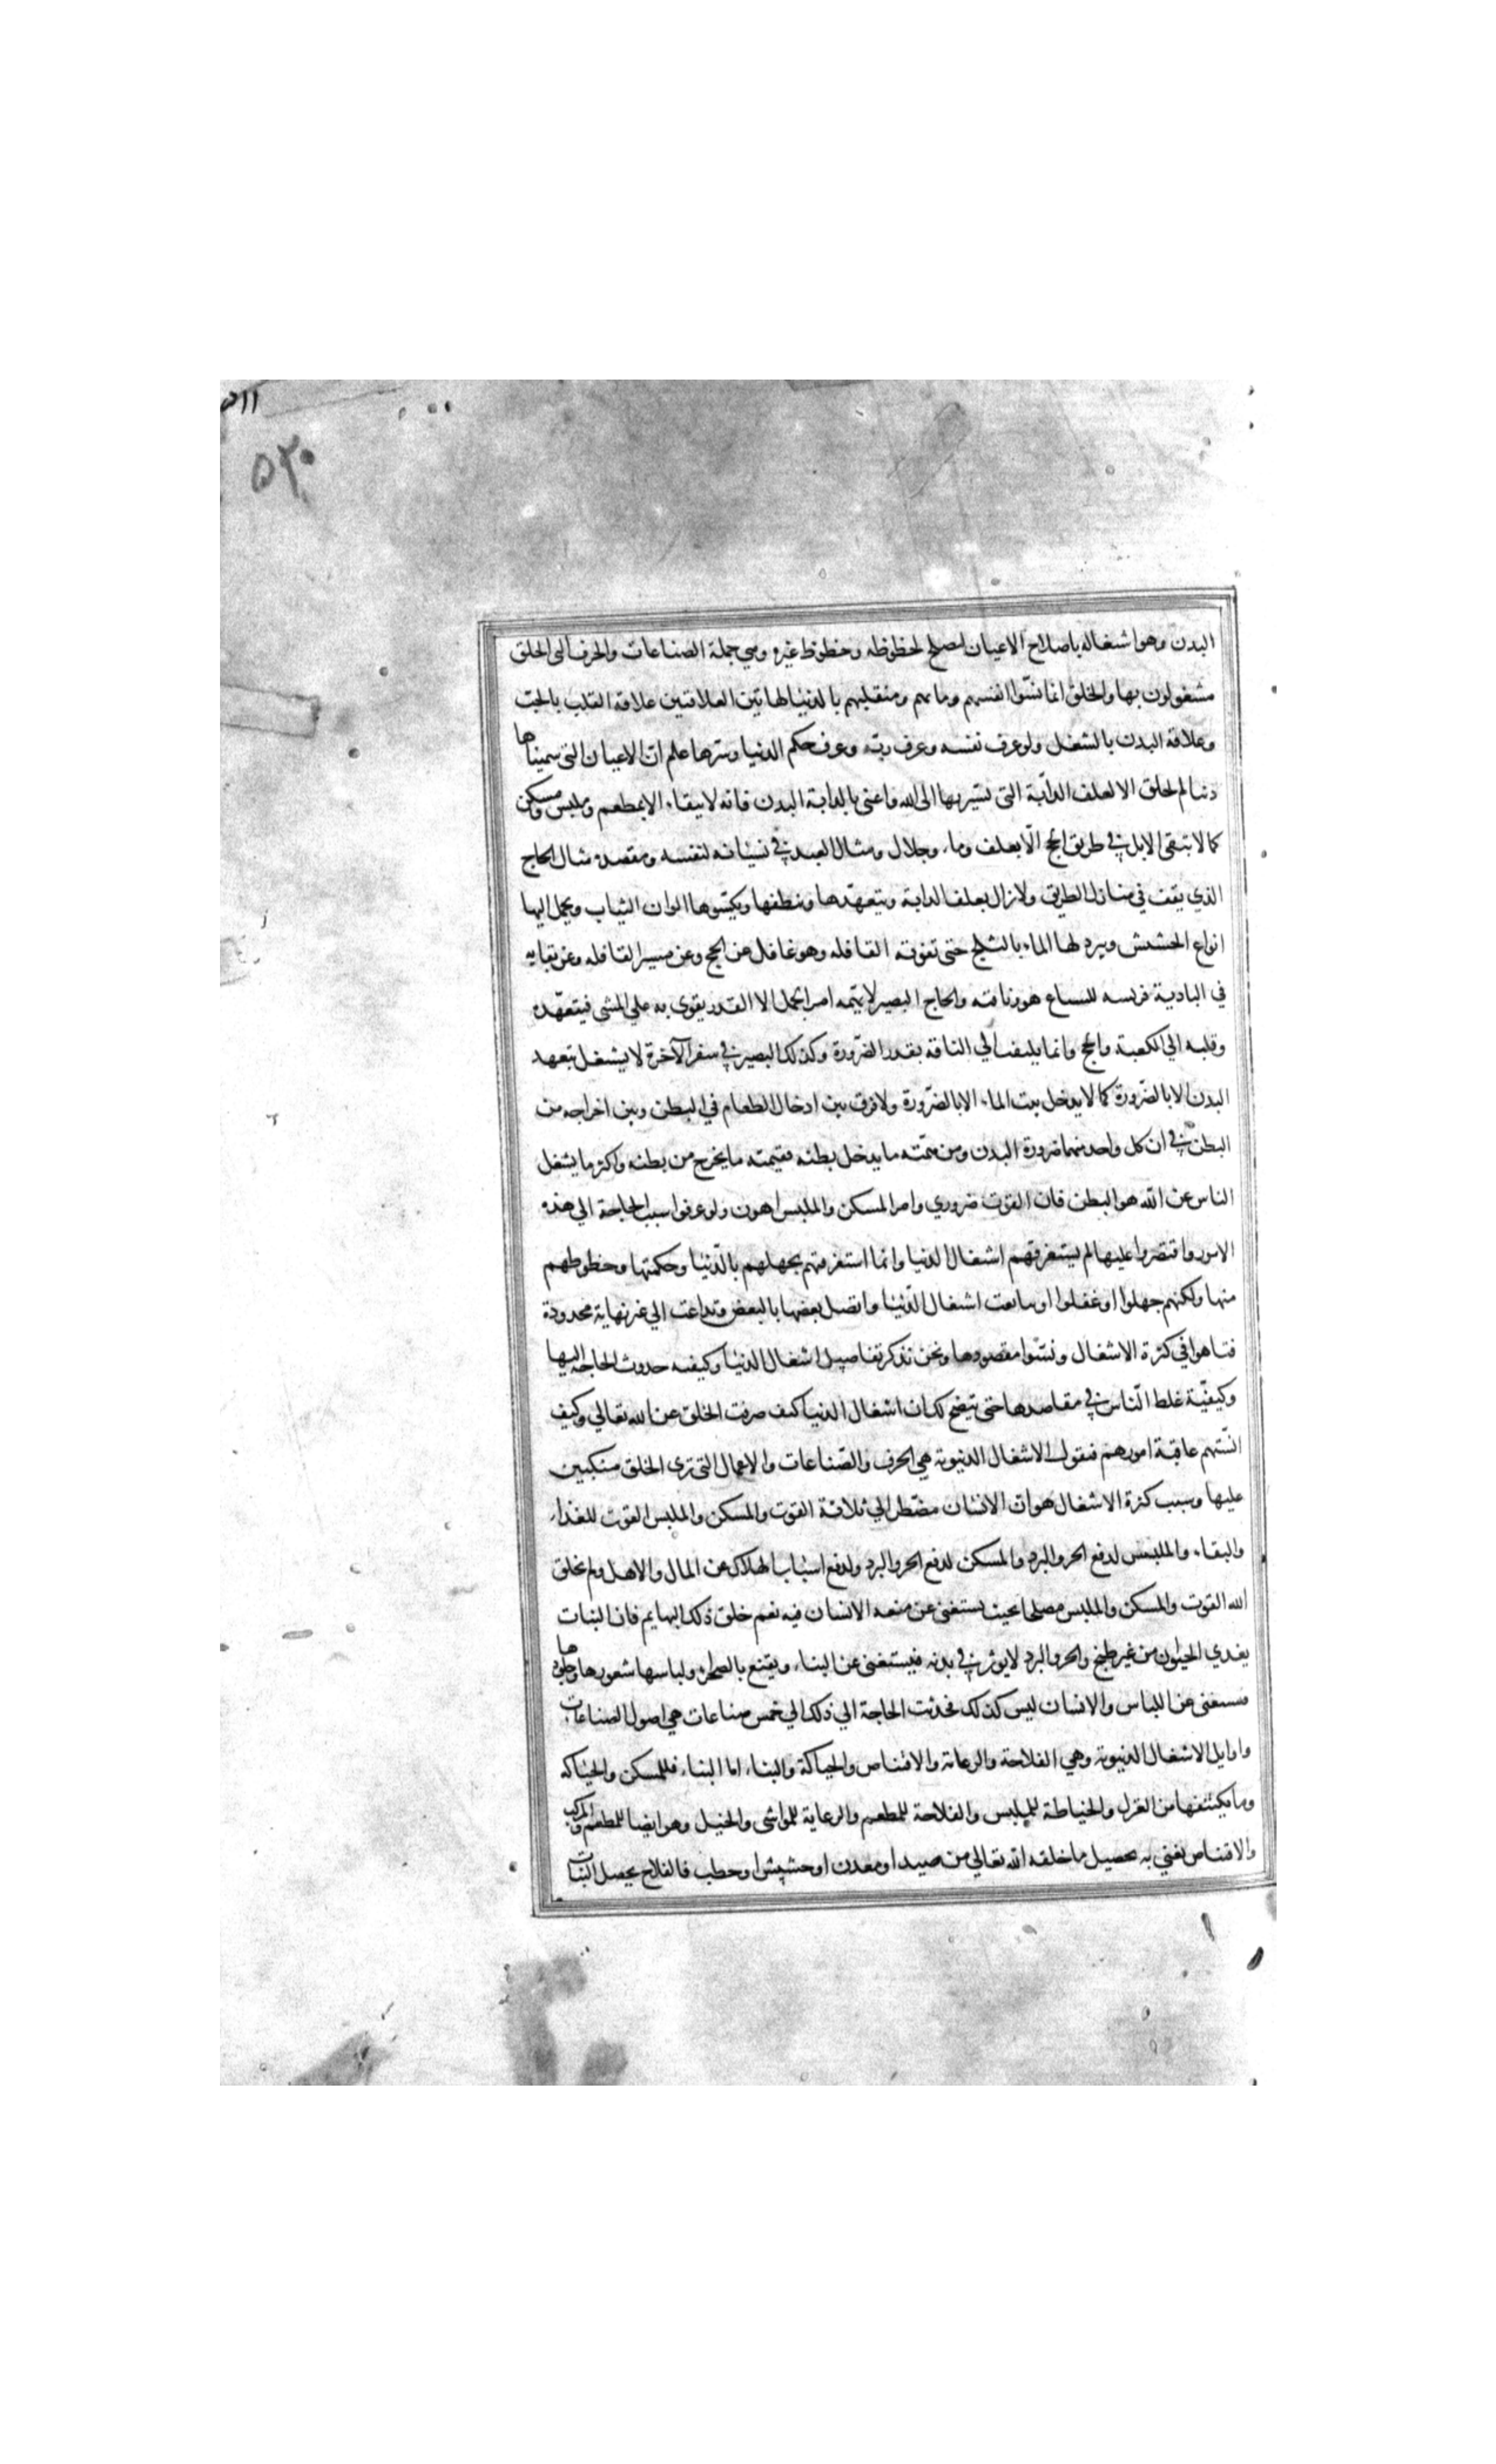 ٥١١
٥٢٠
البدن وهو اشتغاله باصلاح الاعيان لتصلح لحظوظه وحظوظ غيره وهي جملة الصناعات والحرف التى الخلق
مشغولون بها والخلق انما نسّوا انفسهم ومابهم ومنقلبهم بالدنيا لهاتين العلاقتين علاقة القلب بالحبّ
وعلاقة البدن بالشغل ولو عرف نفسه وعرف ربّه وعرف حكم الدنيا وسرّها علم انّ الاعيان التى سميناها
دنيا لم تخلق الا لعلف الدابّة التى تسير بها الى الله فاعنى بالدابة البدن فانه لا يبقاء الا بمطعم وملبس ومسكن
كما لا تبقى الابل في طريق الحج الّا بعلف وماء وجلال ومثال العبد في نسيانه لنفسه ومقصده مثال الحاج
الذي يقف في منازل الطريق ولازال يعلف الدابة ويتعهّدها وينظفها ويكسّوها الوان الثياب ويحمل اليها
انواع الحشيش ويبرد لها الماء بالثلج حتى تفوته القافله وهو غافل عن الحج وعن مسير القافله وعن بقايه
في البادية فريسه للسباع هو وناقته والحاج البصير لا يتمه امر الجمل الا القدر يقوى به على المشى فيتعهّده
وقلبه الي الكعبة والحج وانما يلتفت الي الناقه بقدر الضّرورة وكذلك البصير في سفر الآخرة لا يشغل بتعهد
البدن الا بالضّرورة كما لا يدخل بيت الماء الا بالضّرورة ولا فرق بين ادخال الطعام في البطن وبين اخراجه من
البطن في ان كل واحد منهما ضرورة البدن ومن همّته ما يدخل بطنه فقيمته ما يخرج من بطنه واكثر ما يشغل
الناس عن الله هو البطن فان القوت ضروري وامر المسكن والملبس اهون ولو عرفوا سبب الحاجة الي هذه
الامور واقتصروا عليها لم يستغرقهم اشغال الدنيا وانما استغرقتهم بجهلهم بالدّنيا وحكمتها وحظوظهم
منها ولكنهم جهلوا او غفلوا او تتابعت اشغال الدّنيا واتصل بعضها بالبعض وتداعت الي غير نهاية محدودة
فتاهوا في كثرة الاشغال ونسّوا مقصودها ونحن نذكر تفاصيل اشغال الدنيا وكيفيه حدوث الحاجه اليها
وكيفيّة غلط الّناس في مقاصدها حتى يتضح لك ان اشغال الدنيا كيف صرفت الخلق عن الله تعالي وكيف
انسّتهم عاقبة امورهم فنقول الاشغال الدنيوية هي الحرف والصّناعات والاعمال التى ترى الخلق منكبين
عليها وسبب كثرة الاشغال هو ان الانسان مضّطر الي ثلاثة القوت والمسكن والملبس القوت للغذاء
والبقاء والملبس لدفع الحر والبرد والمسكن لدفع الحر والبرد ولدفع اسباب الهلاك عن المال والاهل ولم يخلق
الله القوت والمسكن والملبس مصلحا بحيث يستغنى عن صنعه الانسان فيه نعم خلق ذلك للبهايم فان النبات
يغدي الحيوان من غير طبخ والحر والبرد لا يوثر في بدنه فيستغنى عن البناء ويقتنع بالصحراء ولباسها شعورها وجلودها
فيستغنى عن اللباس والانسان ليس كذلك فحدثت الحاجة الي ذلك الي خمس صناعات هي اصول الصناعات
واوايل الاشغال الدنيوية وهي الفلاحة والرعاية والاقتناص والحياكة والبناء اما البناء فللمسكن والحياكه
وما يكتنفها من الغزل والخياطة للملبس والفلاحة للمطعم والرعاية للمواشى والخيل وهو ايضا للمطعم والمركب
والاقتناص نغني به تحصيل ما خلقه الله تعالي من صيد او معدن او حشيش او حطب فالفلاح يحصل النبات